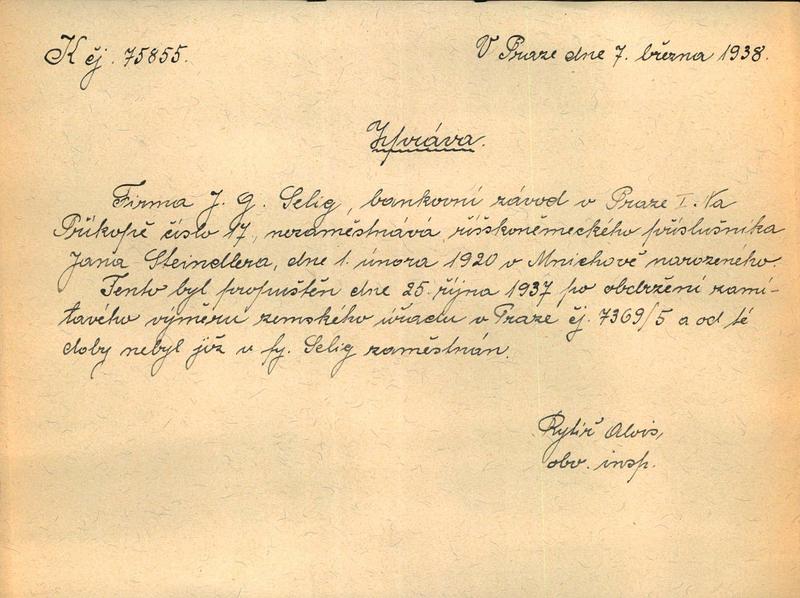 K čj. 75855.
V Praze dne 7. března 1938.
Zpráva.
Firma J. G. Selig, bankovní závod v Praze I. Na
Příkopě číslo 17, nezaměstnává říšskoněmeckého příslušníka
Jana Steindlera, dne 1. února 1920 v Mnichově narozeného.
Tento byl propuštěn dne 25. října 1937 po obdržení zamí-
tavého výměru zemského úřadu v Praze čj. 7369/5 a od té
doby nebyl již u fy. Selig zaměstnán.
Rytíř Alois,
obv. insp.